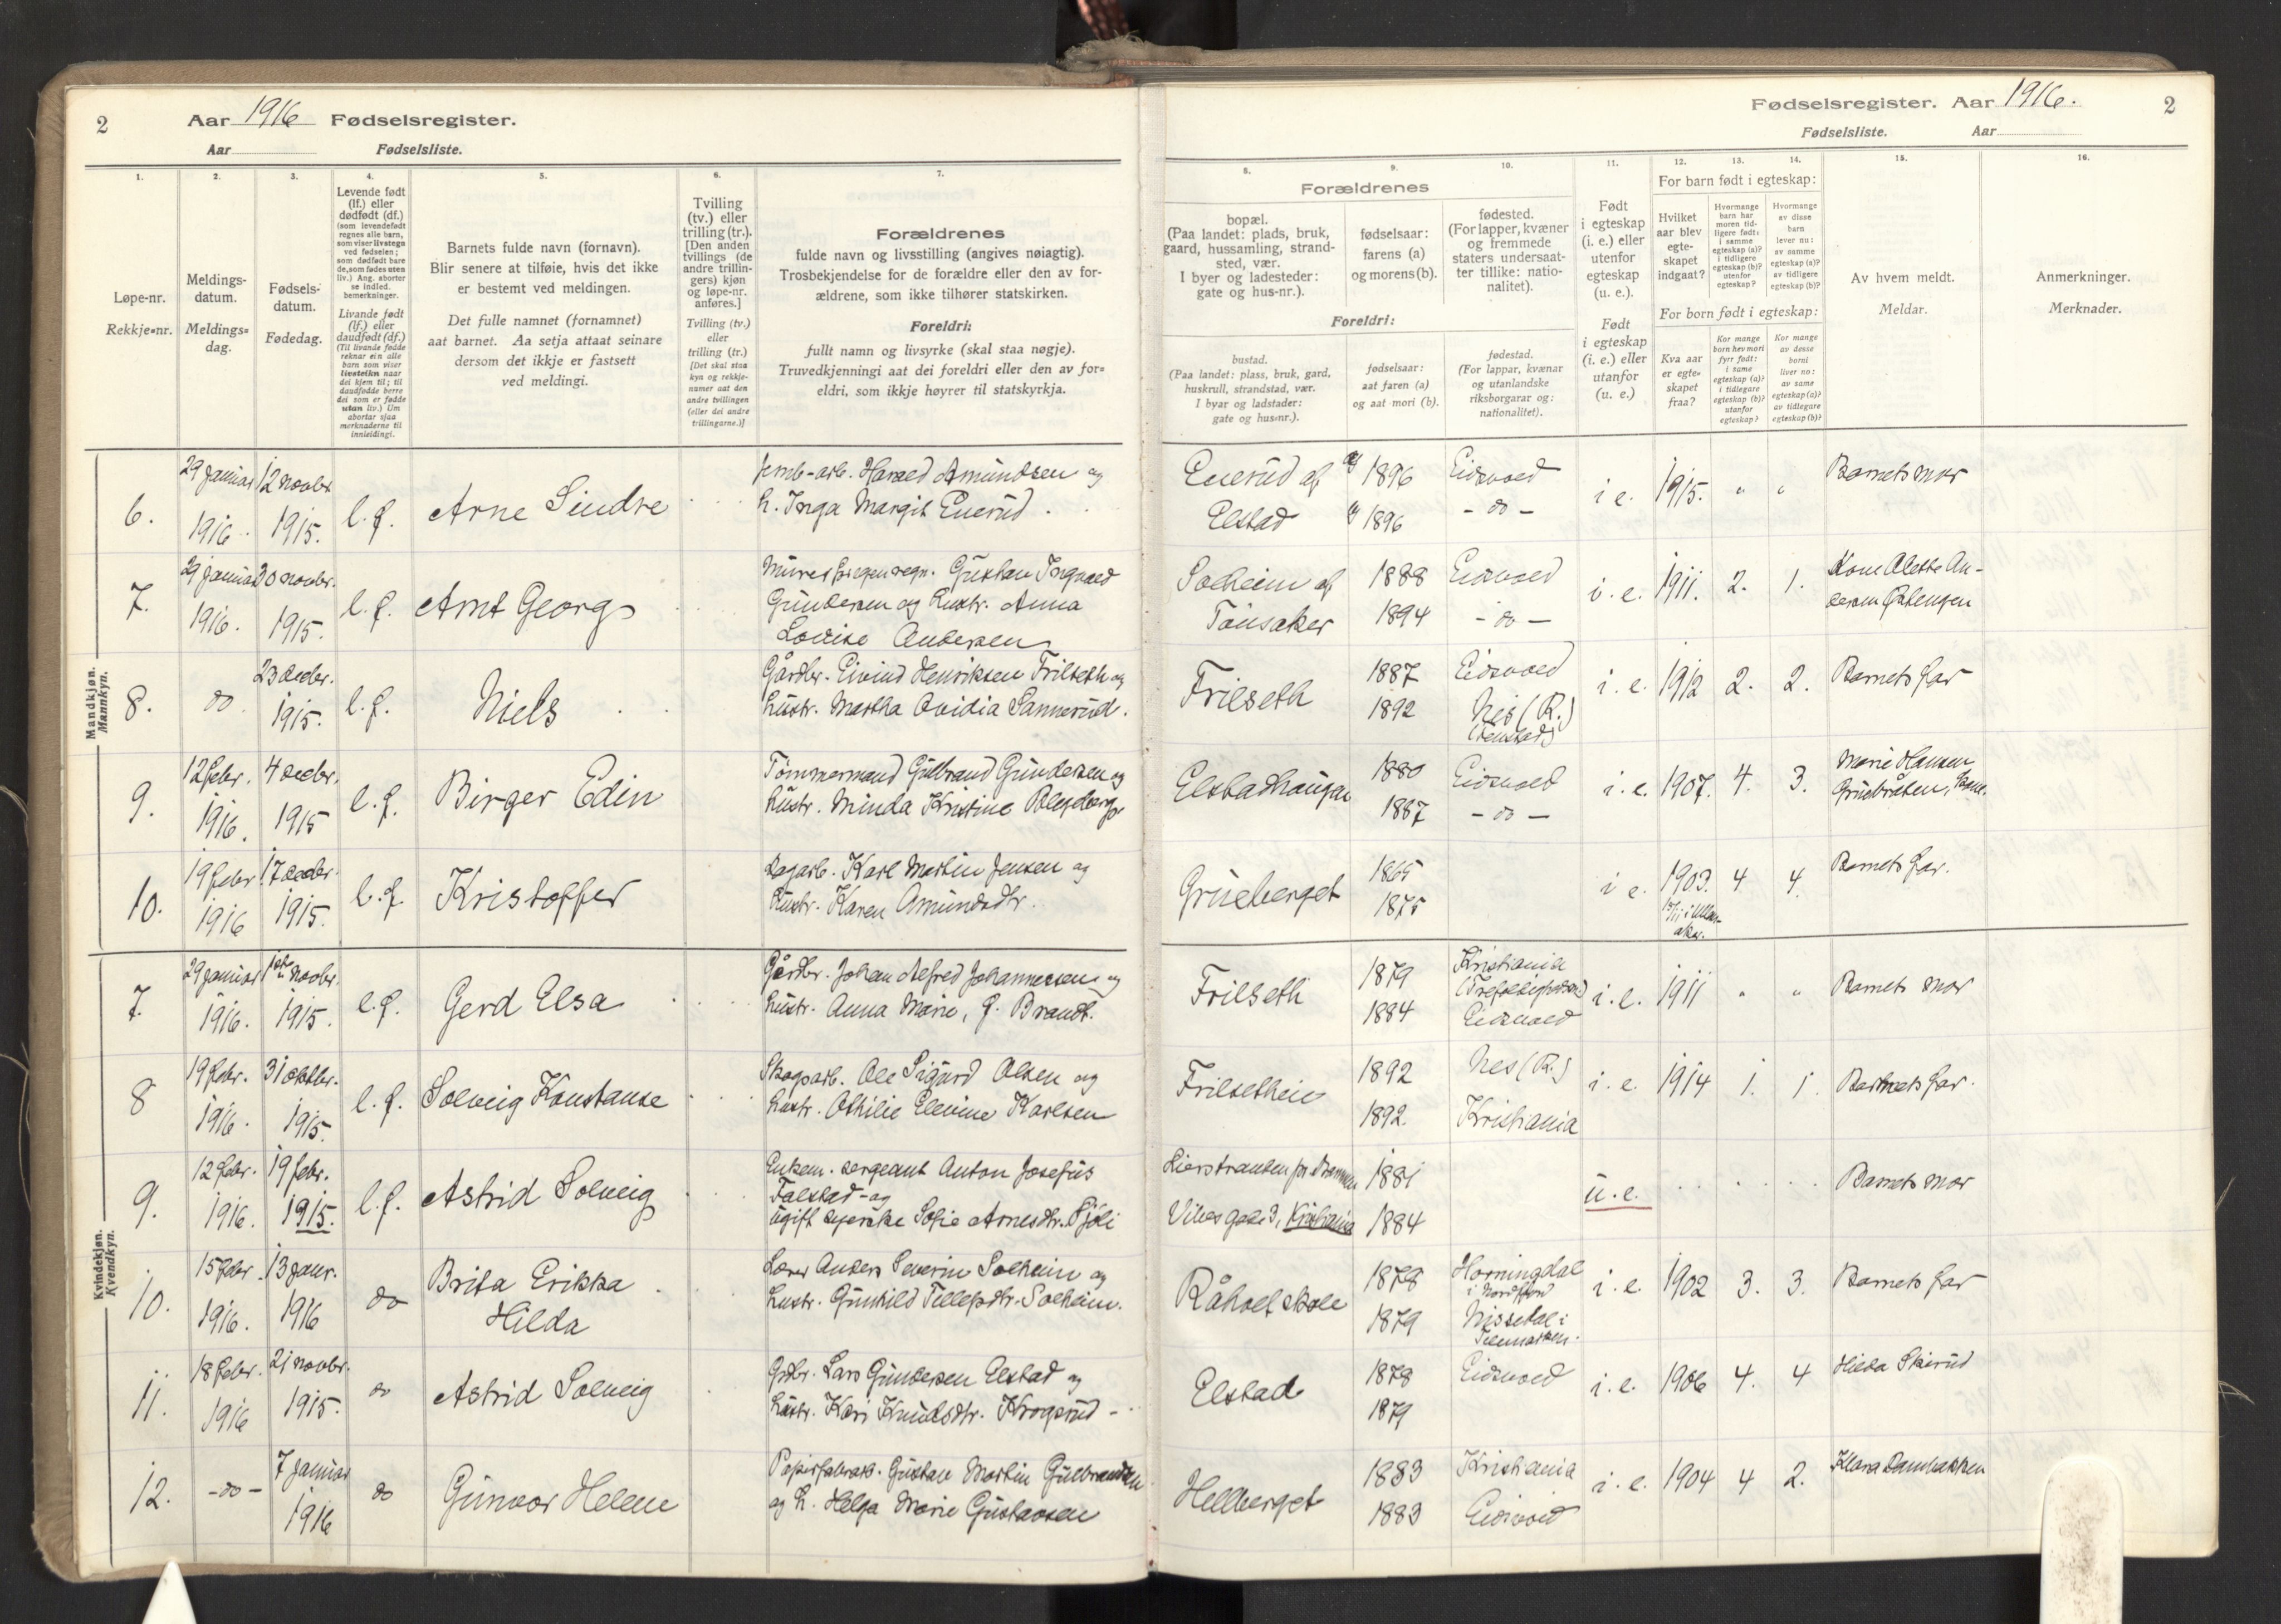 2
Aar 1916 Fødselsregister.
Aar Fødselsliste.
1.
2.
3.
4.
5.
6.
7.
Løpe-nr.
Rekkje=nr.
Meldings-
datum.
Meldings=
dag.
Fødsels-
datum.
Fødedag.
Levende født
(lf.) eller
dødfødt (df.)
(som levendefødt
regnes alle barn,
som viser livstegn
ved fødselen;
som dødfødt bare
de, som fødes uten
liv.) Ang. aborter
se indled.
bemerkninger.
Livande født
(lf.) eller
daudfødt (df.)
(Til livande fødde
reknar ein alle
born som viser
livsteikn naar
dei kjem til; til
daudfødde berre
dei som er fødde
utan liv.) Um
abortar sjaa
merknaderne til
innleidingi.
Barnets fulde navn (fornavn).
Blir senere at tilføie, hvis det ikke
er bestemt ved meldingen.
Det fulle namnet (fornamnet)
aat barnet. Aa setja attaat seinare
dersom det ikkje er fastsett
ved meldingi.
Tvilling
(tv.) eller
trilling (tr.).
[Den anden
tvillings (de
andre trillin-
gers) kjøn
og løpe-nr.
anføres.]
Tvilling (tv.)
eller
trilling (tr.)
[Det skal staa
kyn og rekkje-
numer aat den
andre tvillingen
(eller dei andre
trillingarne.)]
Forældrenes
fulde navn og livsstilling (angives nøiagtig).
Trosbekjendelse for de forældre eller den av for-
ældrene, som ikke tilhører statskirken.
Foreldri:
fullt namn og livsyrke (skal staa nøgje).
Truvedkjenningi aat dei foreldri eller den av for=
eldri, som ikkje høyrer til statskyrkja.
Mandkjøn.
Mannkyn.
6.
29 januar
1916.
12 novbr.
1915.
l.f.
Arne Sindre
jernb-arb. Harald Amundsen og
h. Inga Margit Enerud.
7.
29 januar
1916.
30 novbr.
1915.
l.f.
Arnt Georg
Gustav Ingvald
Gundersen og hustr. Anna
Lovise Andersen
8.
do
23 decbr.
1915.
l.f.
Niels
Gårdbr. Eivind Henriksen Frilseth og
hustr. Martha Ovidia Sannerud.
9.
12 febr.
1916.
4 decbr.
1915
l.f.
Birger Edin
Tømmermand Gulbrand Gundersen og
hustr. Minda Kristine
10.
19 febr.
1916
17 decbr.
1915.
l.f.
Kristoffer
Dagarb. Karl Martin Jensen og
hustr. Karen Amundsdtr.
Kvindekjøn.
Kvendkyn.
7.
29 januar
1916.
novbr.
1915.
l.f.
Gerd Elsa
Gårdbr. Johan Alfred Johannessen og
hustr. Anna Marie, f. Brandt.
8
19 febr.
1916.
31 oktbr.
1915.
l.f.
Solveig Konstanse
Skogsarb. Ole Sigurd Olsen og
hustr. Othilie Elevine Karlsen
9.
12 febr.
1916.
19 febr.
1915.
l.f.
Astrid Solveig
Enkem. sergeant Anton Josefus
Falstad og
ugift syerske Sofie Arnesdtr.
10.
15 febr.
1916.
13 janr.
1916
do
Brita Erikka
Hilda
Lærer Anders Severin Solheim og
hustr. Gunhild Tellefsdtr. Solheim.
11.
18 febr.
1916
21 novbr.
1915.
do
Astrid Solveig
Grdbr. Lars Gundersen Elstad og
hustr. Kari Knudsdtr. Krogsrud -
12.
-do-
7 januar
1916
do
Gunvor Helene
Papirfabrarb. Gustav Martin Gulbrandsen
og h. Helga Marie Gustavsen
Fødselsregister. Aar 1916.
2
Fødselsliste. Aar
8.
9.
10.
11.
12.
13.
14.
15.
16.
Forældrenes
bopæl.
(Paa landet: plads, bruk,
gaard, hussamling, strand-
sted, vær.
I byer og ladesteder:
gate og hus-nr.).
fødselsaar:
farens (a)
og morens (b).
fødested.
(For lapper, kvæner
og fremmede
staters undersaat-
ter tillike: natio-
nalitet).
Foreldri:
bustad.
(Paa landet: plass, bruk, gard,
huskrull, strandstad, vær.
I byar og ladstader:
gate og hus=nr.).
fødselsaar:
aat faren (a)
og aat mori (b).
fødestad.
(For lappar, kvænar
og utanlandske
riksborgarar og:
nationalitet).
Født
i egteskap
(i. e.) eller
utenfor
egteskap
(u. e.).
Født
i egteskap
(i. e.) eller
utanfor
egteskap
(u. e.)
For barn født i egteskap:
Hvilket
aar blev
egte-
skapet
indgaat?
Hvormange
barn har
moren tid-
ligere født:
i samme
egteskap (a)?
i tidligere
egteskap (b)?
utenfor
egteskap?
Hvormange
av disse
barn
lever nu:
av samme
egteskap (a)?
av tidligere
egteskap (b)?
For born født i egteskap:
Kva aar
er egte=
skapet
fraa?
Kor mange
born hev mori
fyrr født:
i same
egteskap (a)?
i tidlegare
egteskap (b)?
utanfor
egteskap?
Kor mange
av desse
borni
liver no:
av same
egteskap (a)?
av tidlegare
egteskap (b)?
Av hvem meldt.
Meldar.
Anmerkninger.
Merknader.
Enerud af
Elstad
1896
1896
Eidsvold
- do -
i e.
1915.
"
"
Barnets mor
Solheim af
Tønsaker
1888
1894
Eidsvold
- do -
i. e.
1911.
2.
1.
Kone Alette An-
dersen Østengen
Frilseth
1887
1892
Eidsvold
Nes (R.)
i. e.
1912
2.
2.
Barnets far
Elstadhaugen
1880
1887
Eidsvold
- do -
i. e.
1907.
4.
3.
Marie Hansen
Gruebråten,
Grueberget
1865
1875
i e.
1903.
4
4.
Barnets far.
Frilseth
1879
1884
Kristiania
Eidsvold
i. e.
1911
"
"
Barnets mor
Frilsetheie
1892
1892.
Nes (R.)
Kristiania
i. e.
1914
1.
1.
Barnets far.
Lierstranden pr. Drammen
Vibesgade 3, Kristiania
1881
1884
u. e.
Barnets mor
Råholt skole
1878
1879
Horningdal
i Nordfjord
Nissedal i
Telemarken.
i. e.
1902
3.
3.
Barnets far
Elstad
1878
1879
Eidsvold
i. e.
1906
4.
4
Hilda Skirud
Helberget
1883
1883
Kristiania
Eidsvold
i. e.
1904
4
2.
Klara Dambakken